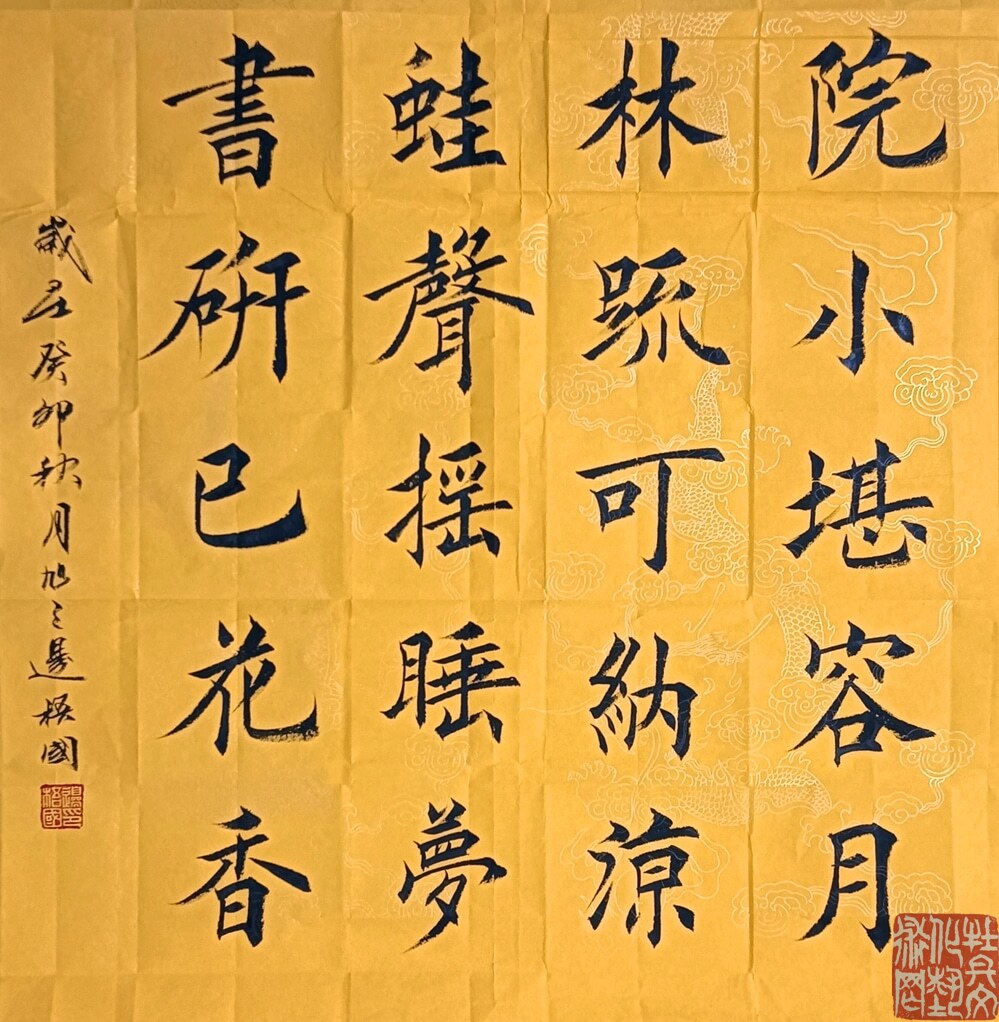 院小堪容月
林疏可納涼
蛙聲摇睡夢
書研已花香
歲在癸卯秋月旭之邊梧國